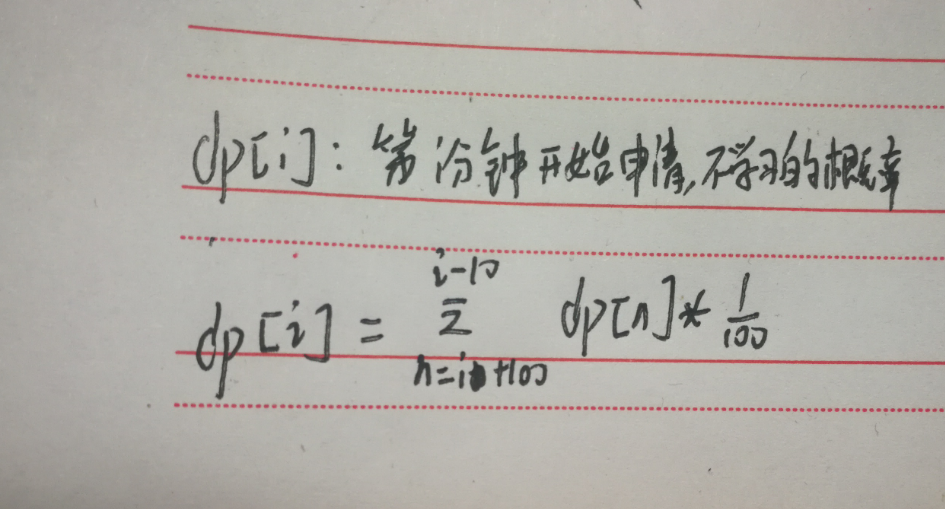 dp[i]: 第i分钟开始申请,不学习的概率
dp[i] = \sum_{n=i+100}^{i-10} dp[n]*\frac{1}{100}